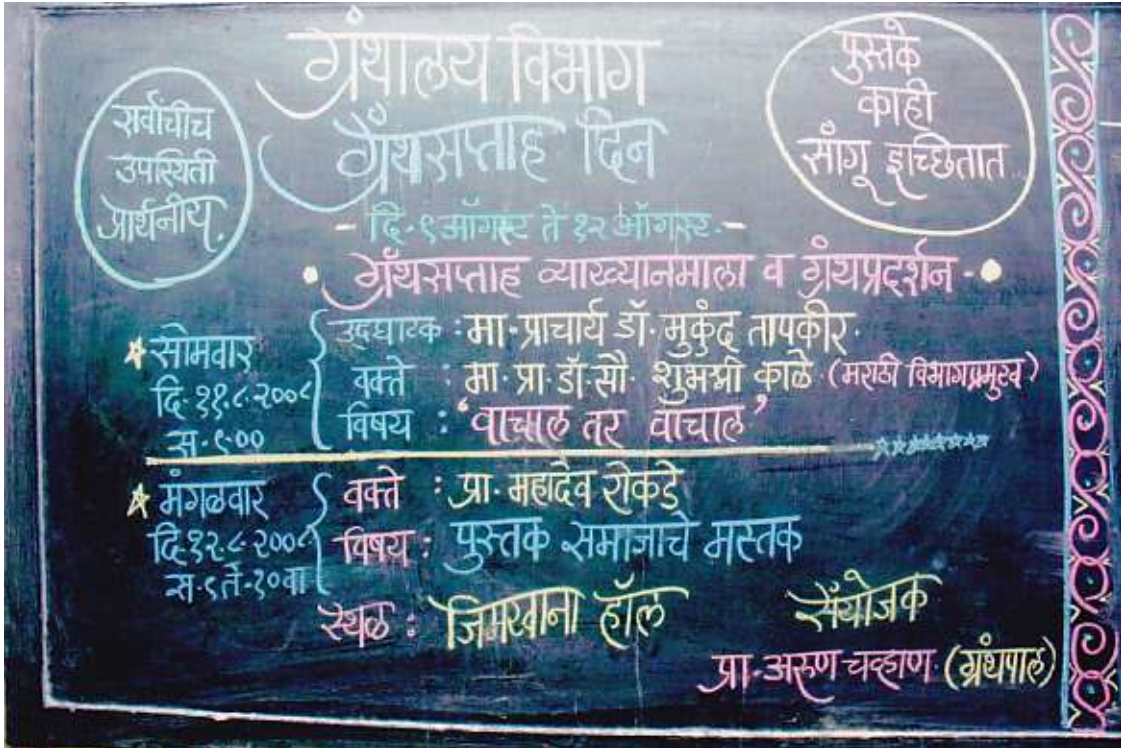 ग्रंथालय विभाग
ग्रंथसप्ताह दिन
सर्वांचीच
उपस्थिती
प्रार्थनीय.
पुस्तके
काही
सांगू इच्छितात..
- दि. ९ ऑगस्ट ते १२ ऑगस्ट. -
• ग्रंथसप्ताह व्याख्यानमाला व ग्रंथप्रदर्शन - •
सोमवार
दि. ११.८.२००८
स. ९.००
उदघाटक : मा. प्राचार्य डॉ. मुकुंद तापकीर.
वक्ते : मा. प्रा. डॉ. सौ. शुभश्री काळे (मराठी विभागप्रमुख)
विषय : 'वाचाल तर वाचाल'
मंगळवार
दि. १२.८.२००८
स. ९ ते १० वा
वक्ते : प्रा. महादेव रोकडे
विषय : पुस्तक समाजाचे मस्तक
स्थळ : जिमखाना हॉल
संयोजक
प्रा. अरुण चव्हाण (ग्रंथपाल)